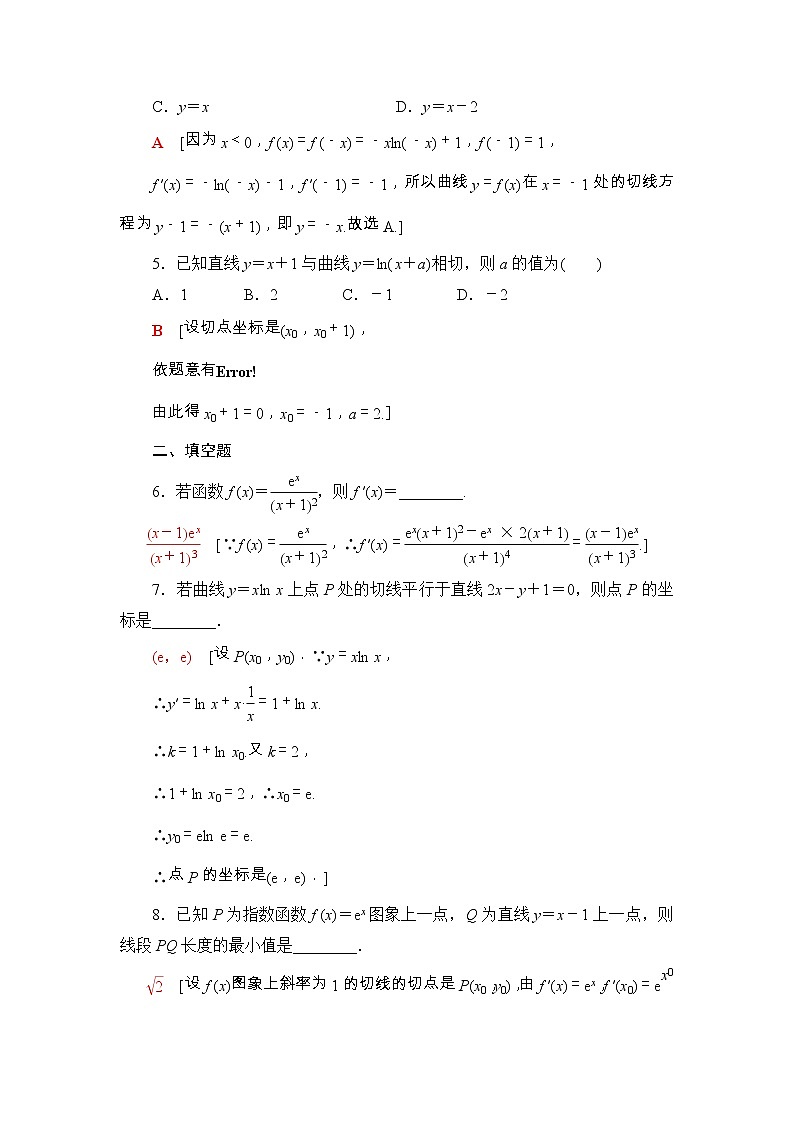 C．y＝x D．y＝x－2
A [因为 x＜0，f (x)＝f (－x)＝－xln(－x)＋1，f (－1)＝1，
f ′(x)＝－ln(－x)－1，f ′(－1)＝－1，所以曲线 y＝f (x)在 x＝－1 处的切线方
程为 y－1＝－(x＋1)，即 y＝－x.故选 A.]
5．已知直线 y＝x＋1 与曲线 y＝ln(x＋a)相切，则 a 的值为( )
A．1 B．2 C．－1 D．－2
B [设切点坐标是(x₀，x₀＋1)，
依题意有Error!
由此得 x₀＋1＝0，x₀＝－1，a＝2.]
二、填空题
6．若函数 f (x)＝eˣ/(x＋1)²，则 f ′(x)＝________.
(x－1)eˣ/(x＋1)³ [∵f (x)＝eˣ/(x＋1)²，∴f ′(x)＝eˣ(x＋1)²－eˣ × 2(x＋1)/(x＋1)⁴＝(x－1)eˣ/(x＋1)³.]
7．若曲线 y＝xln x 上点 P 处的切线平行于直线 2x－y＋1＝0，则点 P 的坐
标是________．
(e，e) [设 P(x₀，y₀)．∵y＝xln x，
∴y′＝ln x＋x·1/x＝1＋ln x.
∴k＝1＋ln x₀.又 k＝2，
∴1＋ln x₀＝2，∴x₀＝e.
∴y₀＝eln e＝e.
∴点 P 的坐标是(e，e)．]
8．已知 P 为指数函数 f (x)＝eˣ 图象上一点，Q 为直线 y＝x－1 上一点，则
线段 PQ 长度的最小值是________．
√2 [设 f (x)图象上斜率为 1 的切线的切点是 P(x₀，y₀)，由 f ′(x)＝eˣ，f ′(x₀)＝eˣ⁰